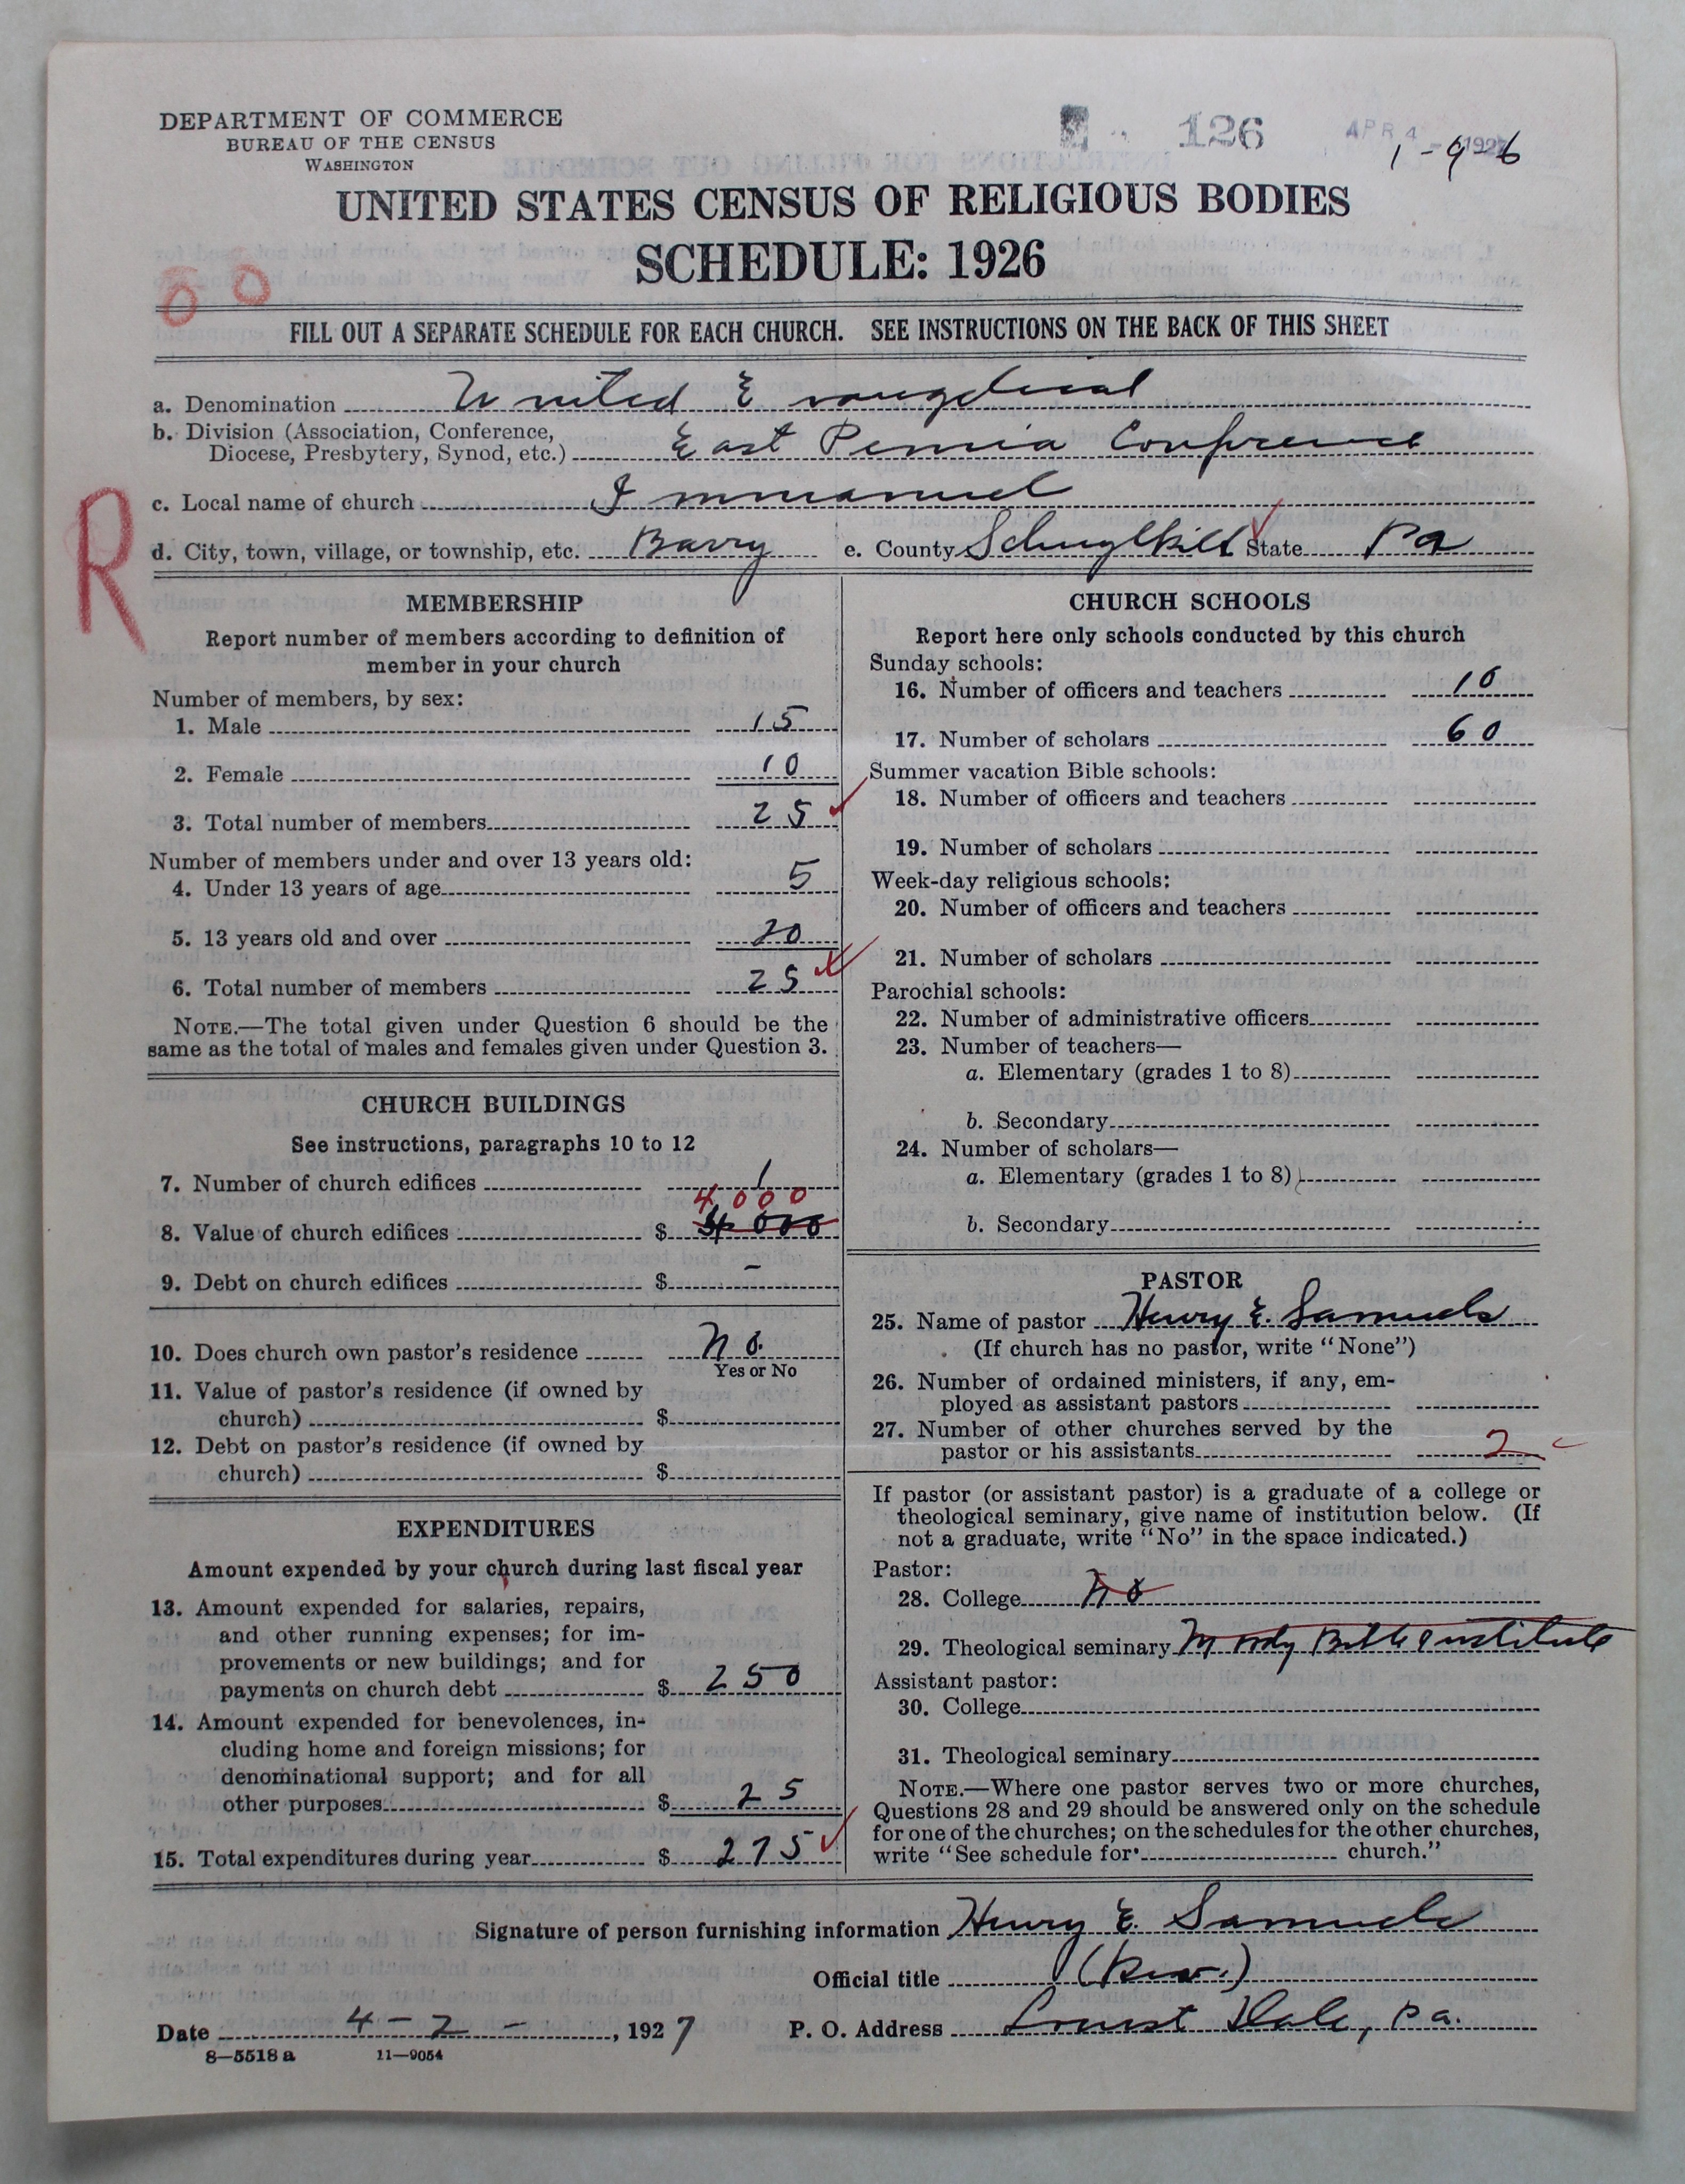 DEPARTMENT OF COMMERCE
BUREAU OF THE CENSUS
WASHINGTON
126
APR 4 1927
1-9-6
UNITED STATES CENSUS OF RELIGIOUS BODIES
SCHEDULE: 1926
0 0
FILL OUT A SEPARATE SCHEDULE FOR EACH CHURCH. SEE INSTRUCTIONS ON THE BACK OF THIS SHEET
a. Denomination United Evangelical
b. Division (Association, Conference,
Diocese, Presbytery, Synod, etc.) East Penna Conference
R
c. Local name of church Immanuel
d. City, town, village, or township, etc. Barry e. County Schuylkill State Pa
MEMBERSHIP
Report number of members according to definition of
member in your church
Number of members, by sex:
1. Male 15
2. Female 10
3. Total number of members 25
Number of members under and over 13 years old:
4. Under 13 years of age 5
5. 13 years old and over 20
6. Total number of members 25
NOTE.—The total given under Question 6 should be the
same as the total of males and females given under Question 3.
CHURCH BUILDINGS
See instructions, paragraphs 10 to 12
7. Number of church edifices 1
4000
8. Value of church edifices $ 4000
9. Debt on church edifices $ -
10. Does church own pastor's residence No.
Yes or No
11. Value of pastor's residence (if owned by
church) $
12. Debt on pastor's residence (if owned by
church) $
EXPENDITURES
Amount expended by your church during last fiscal year
13. Amount expended for salaries, repairs,
and other running expenses; for im-
provements or new buildings; and for
payments on church debt $ 250
14. Amount expended for benevolences, in-
cluding home and foreign missions; for
denominational support; and for all
other purposes $ 25
15. Total expenditures during year $ 275
CHURCH SCHOOLS
Report here only schools conducted by this church
Sunday schools:
16. Number of officers and teachers 10
17. Number of scholars 60
Summer vacation Bible schools:
18. Number of officers and teachers
19. Number of scholars
Week-day religious schools:
20. Number of officers and teachers
21. Number of scholars
Parochial schools:
22. Number of administrative officers
23. Number of teachers—
a. Elementary (grades 1 to 8)
b. Secondary
24. Number of scholars—
a. Elementary (grades 1 to 8)
b. Secondary
PASTOR
25. Name of pastor Henry E. Samuels
(If church has no pastor, write "None")
26. Number of ordained ministers, if any, em-
ployed as assistant pastors
27. Number of other churches served by the
pastor or his assistants 2
If pastor (or assistant pastor) is a graduate of a college or
theological seminary, give name of institution below. (If
not a graduate, write "No" in the space indicated.)
Pastor:
28. College No
29. Theological seminary Moody Bible Institute
Assistant pastor:
30. College
31. Theological seminary
NOTE.—Where one pastor serves two or more churches,
Questions 28 and 29 should be answered only on the schedule
for one of the churches; on the schedules for the other churches,
write "See schedule for church."
Signature of person furnishing information Henry E. Samuels
Official title (Rev.)
Date 4-2-, 1927 P. O. Address Locust Dale, Pa.
8—5518 a 11—9054